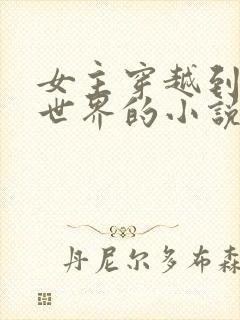 女主穿越到
世界的小説
丹尼尔多布森